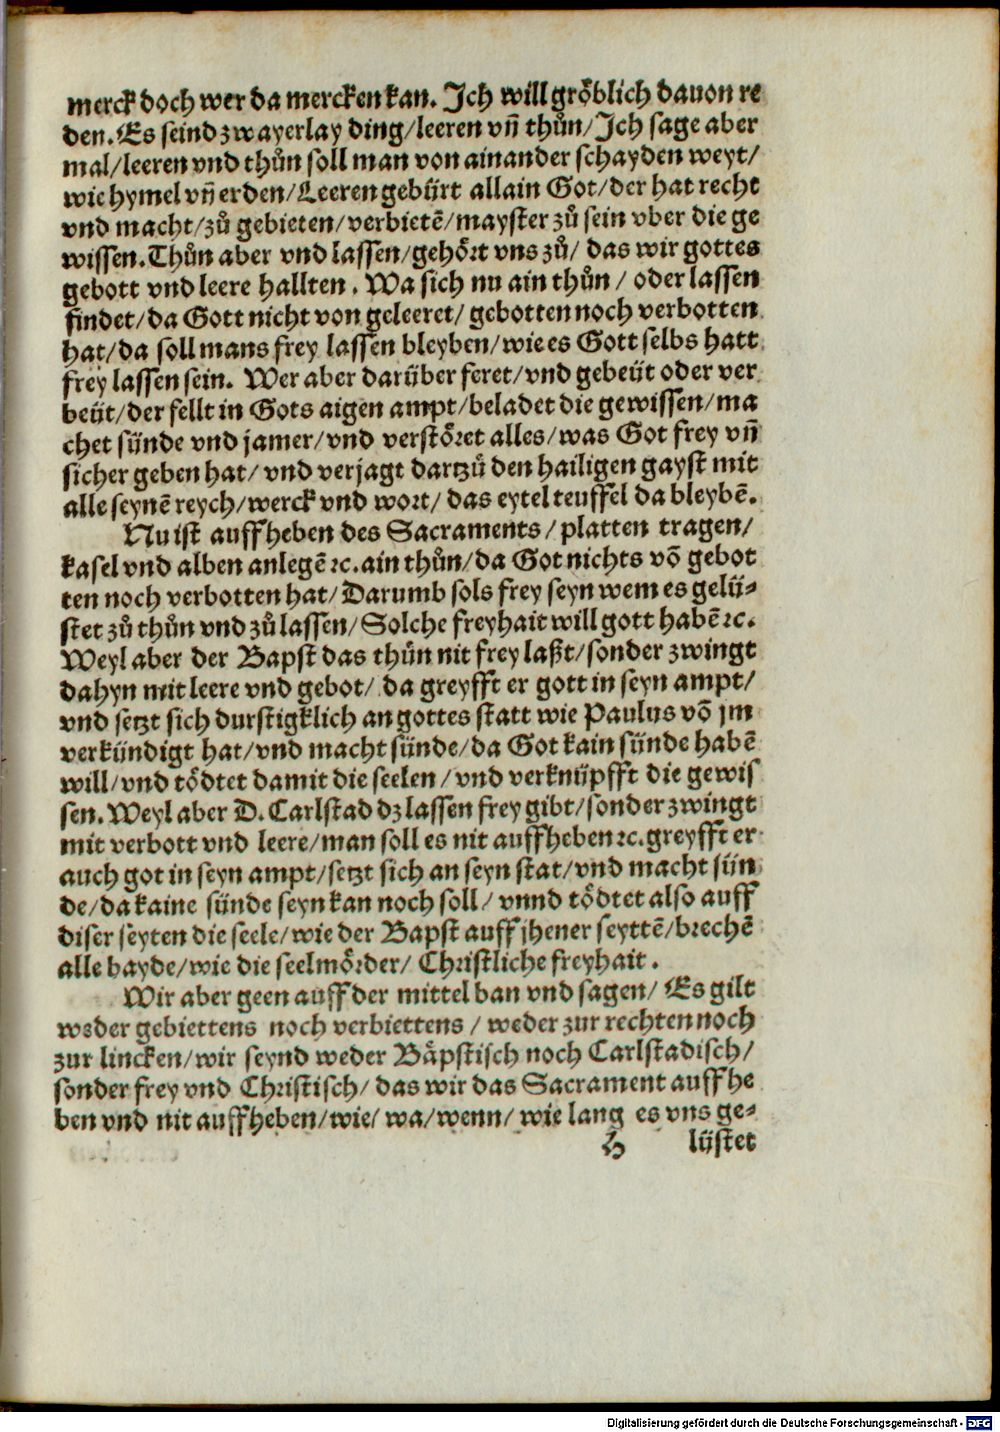 merck doch wer da mercken kan. Jch will gröblich dauon re
den. Es seind zwayerlay ding/leeren vñ thůn/Jch sage aber
mal/leeren vnd thůn soll man von ainander schayden weyt/
wie hymel vñ erden/Leeren gebürt allain Got/der hat recht
vnd macht/zů gebieten/verbietē/mayster zů sein vber die ge
wissen. Thůn aber vnd lassen/gehört vns zů/ das wir gottes
gebott vnd leere hallten. Wa sich nu ain thůn/ oder lassen
findet/da Gott nicht von geleeret/ gebotten noch verbotten
hat/da soll mans frey lassen bleyben/wie es Gott selbs hatt
frey lassen sein. Wer aber darüber feret/vnd gebeüt oder ver
beüt/der fellt in Gots aigen ampt/beladet die gewissen/ma
chet sünde vnd jamer/vnd verstöret alles/was Got frey vñ
sicher geben hat/ vnd verjagt dartzů den hailigen gayst mit
alle seynē reych/werck vnd wort/ das eytel teuffel da bleybē.
Nu ist auffheben des Sacraments/platten tragen/
kasel vnd alben anlegē ꝛc. ain thůn/da Got nichts võ gebot
ten noch verbotten hat/Darumb sols frey seyn wem es gelü-
stet zů thůn vnd zů lassen/Solche freyhait will gott habē ꝛc.
Weyl aber der Bapst das thůn nit frey laßt/sonder zwingt
dahyn mit leere vnd gebot/ da greyfft er gott in seyn ampt/
vnd setzt sich durstigklich an gottes statt wie Paulus võ jm
verkündigt hat/vnd macht sünde/da Got kain sünde habē
will/vnd tödtet damit die seelen/vnd verknüpfft die gewis
sen. Weyl aber D. Carlstad dz lassen frey gibt/sonder zwingt
mit verbott vnd leere/man soll es nit auffheben ꝛc. greyfft er
auch got in seyn ampt/setzt sich an seyn stat/vnd macht sün
de/da kaine sünde seyn kan noch soll/ vnnd tödtet also auff
diser seyten die seele/wie der Bapst auff jhener seyttē/brechē
alle bayde/wie die seelmörder/ Christliche freyhait.
Wir aber geen auff der mittel ban vnd sagen/ Es gilt
weder gebiettens noch verbiettens/weder zur rechten noch
zur lincken/wir seynd weder Bäpstisch noch Carlstadisch/
sonder frey vnd Christisch/ das wir das Sacrament auffhe
ben vnd nit auffheben/wie/ wa/wenn/ wie lang es vns ge-
h lüstet
Digitalisierung gefördert durch die Deutsche Forschungsgemeinschaft - DFG